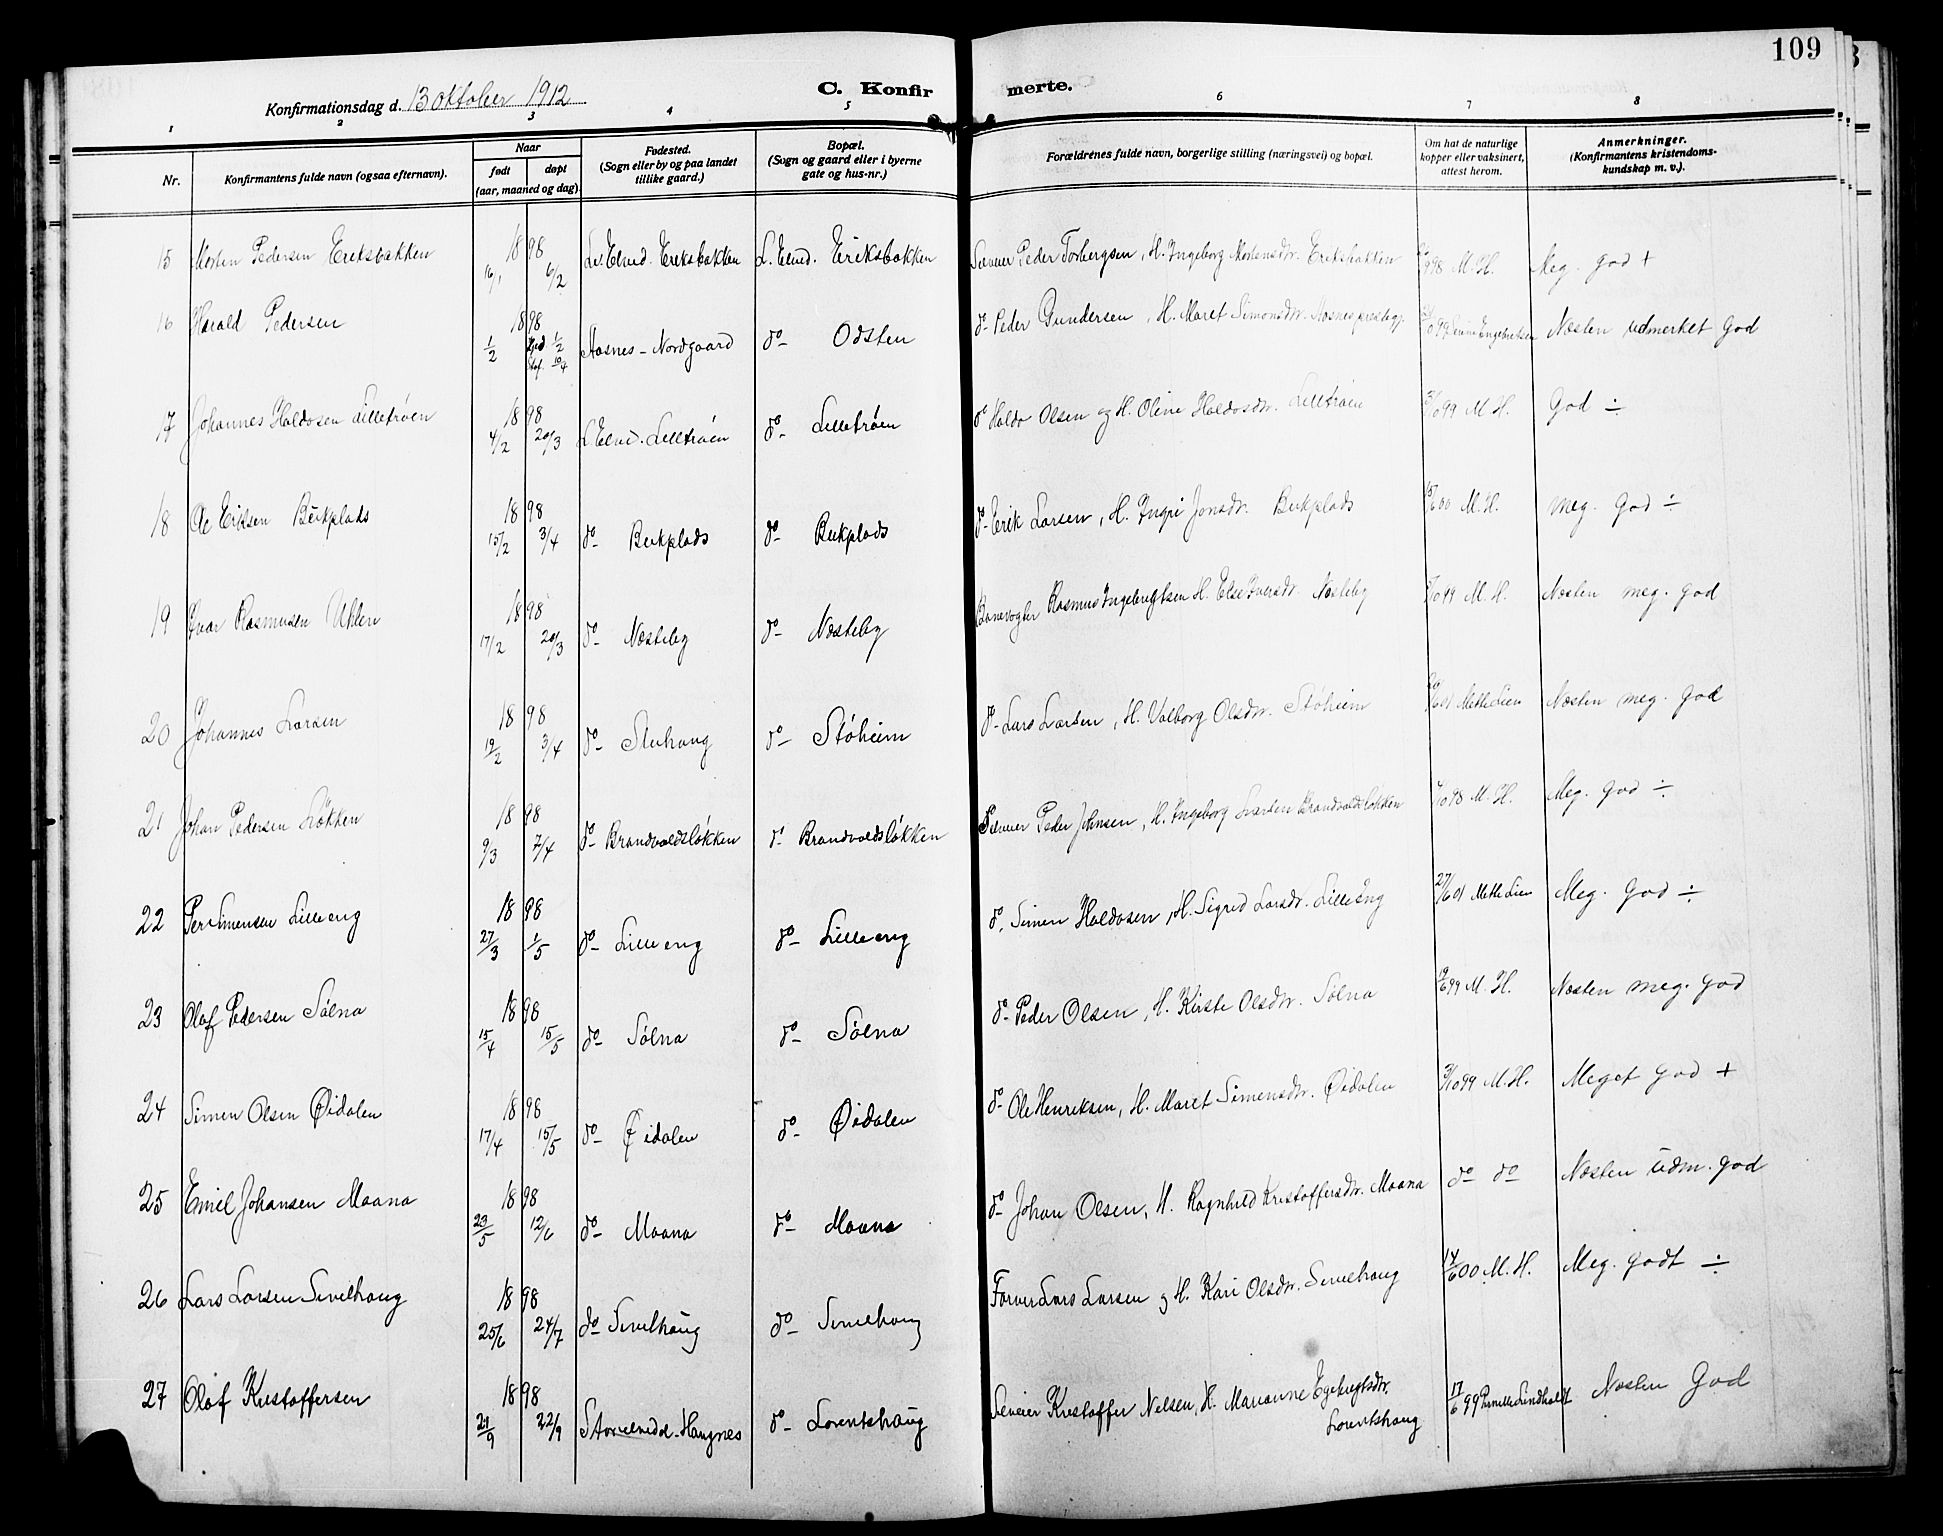 109
Konfirmationsdag d. 13 oktober 1912
C. Konfirmerte.
1 2 3 4 5 6 7 8
Nr. Konfirmantens fulde navn (ogsaa efternavn). Naar født døpt (aar, maaned og dag) Fødested. (Sogn eller by og paa landet tillike gaard.) Bopæl. (Sogn og gaard eller i byerne gate og hus-nr.) Forældrenes fulde navn, borgerlige stilling (næringsvei) og bopæl. Om hat de naturlige kopper eller vaksinert, attest herom. Anmerkninger. (Konfirmantens kristendoms-kundskap m. v.).
15 Morten Pedersen Eriksbakken 1898 16/1 6/2 L. Elved. Eriksbakken L. Elved. Eriksbakken Selveier Peder Torbergsen, H. Ingeborg Mortensdr. Eriksbakken 98 M. H. Meg. god +
16 Harald Pedersen 1898 1/2 1/2 Staf. 10/4 Aasnes - Nordgaard do - Odsten do - Peder Gundersen, H. Maret Simonsdr. Aasnes prestegj. 99 Engebretsen Næsten udmerket god
17 Johannes Haldosen Lilletrøen 1898 4/2 20/3 L. Elved. Lilletrøen do - Lilletrøen do Haldo Olsen og H. Oline Haldosdr. Lilletrøen 3/10 99 M. H. God ÷
18 Ole Eriksen Bækplads 1898 15/2 3/4 do - Bekplads do - Bekplads do - Erik Larsen, H. Ingri Jonsdr. Bekplads 15/6 00 M. H. meg. god ÷
19 Ivar Rasmusen Uhlen 1898 17/2 20/3 do - Næsteby do - Næsteby Banevogter Rasmus Ingebregtsen H. Else Iversdr. Næsteby 3/10 99 M. H. Næsten meg. god
20 Johannes Larsen 1898 19/2 3/4 do - Stuhaug do - Støheim do - Lars Larsen, H. Valborg Olsdr. Støheim 26/6 01 Mette Lien Næsten meg. god
21 Johan Pedersen Løkken 1898 9/3 7/4 do - Brandvoldsløkken do - Brandvoldsløkken Selveier Peder Johnsen, H. Ingeborg Larsen Brandvoldsløkken 10 98 M. H. Meg. god ÷
22 Per Simensen Lilleeng 1898 27/3 1/5 do - Lilleeng do - Lilleeng do. Simen Haldosen, H. Sigrid Larsdr. Lilleeng 27/6 01 Mette Lien Meg. god ÷
23 Olaf Pedersen Sølna 1898 15/4 15/5 do - Sølna do - Sølna do - Peder Olsen, H. Kirsti Olsdr. Sølna 9/6 99 M. H. Næsten meg. god
24 Simen Olsen Øidalen 1898 17/4 15/5 do - Øidalen do - Øidalen do - Ole Henriksen, H. Maret Simensdr. Øidalen 3/10 99 M. H. Meget god +
25 Emil Johansen Moana 1898 23/5 12/6 do - Moana do - Moana do - Johan Olsen, H. Ragnhild Kristoffersdr. Moana do do Næsten udm. god
26 Lars Larsen Sivilhaug 1898 25/6 24/7 do Sivilhaug do - Sivilhaug Forver Lars Larsen og H. Kari Olsdr. Sivilhaug 14/6 00 M. H. Meg. godt ÷
27 Olaf Kristoffersen 1898 21/9 22/9 Storelvedal - Haugnes do - Lorentshaug Selveier Kristoffer Nilsen, H. Marianne Egebregtsdr. Lorentshaug 17/6 99 Pernille Lindholdt Næsten God